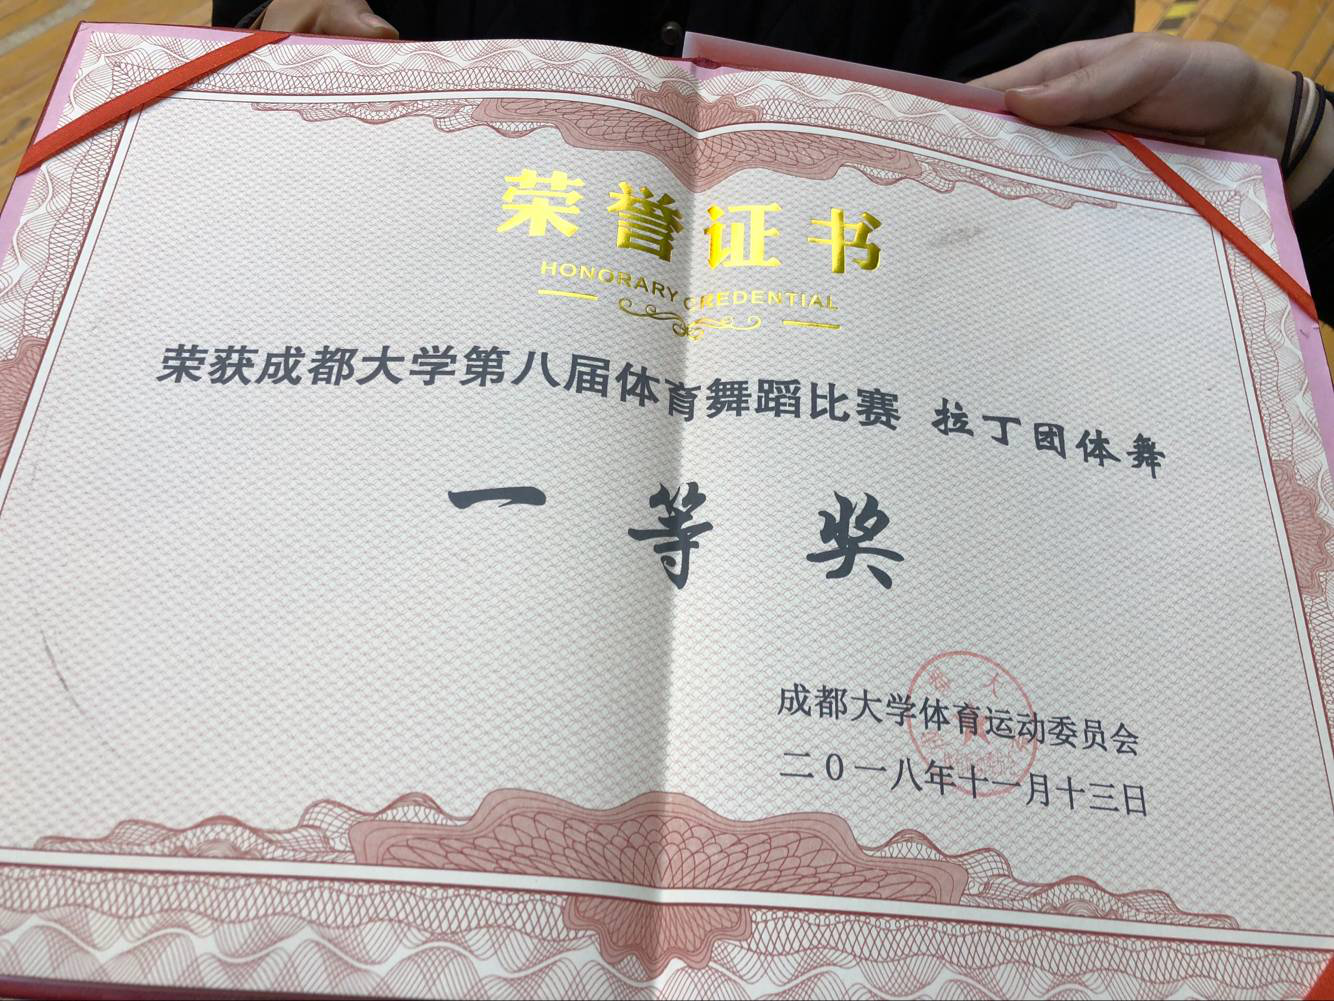 荣誉证书
HONORARY CREDENTIAL
荣获成都大学第八届体育舞蹈比赛 拉丁团体舞
一等奖
成都大学体育运动委员会
二0一八年十一月十三日